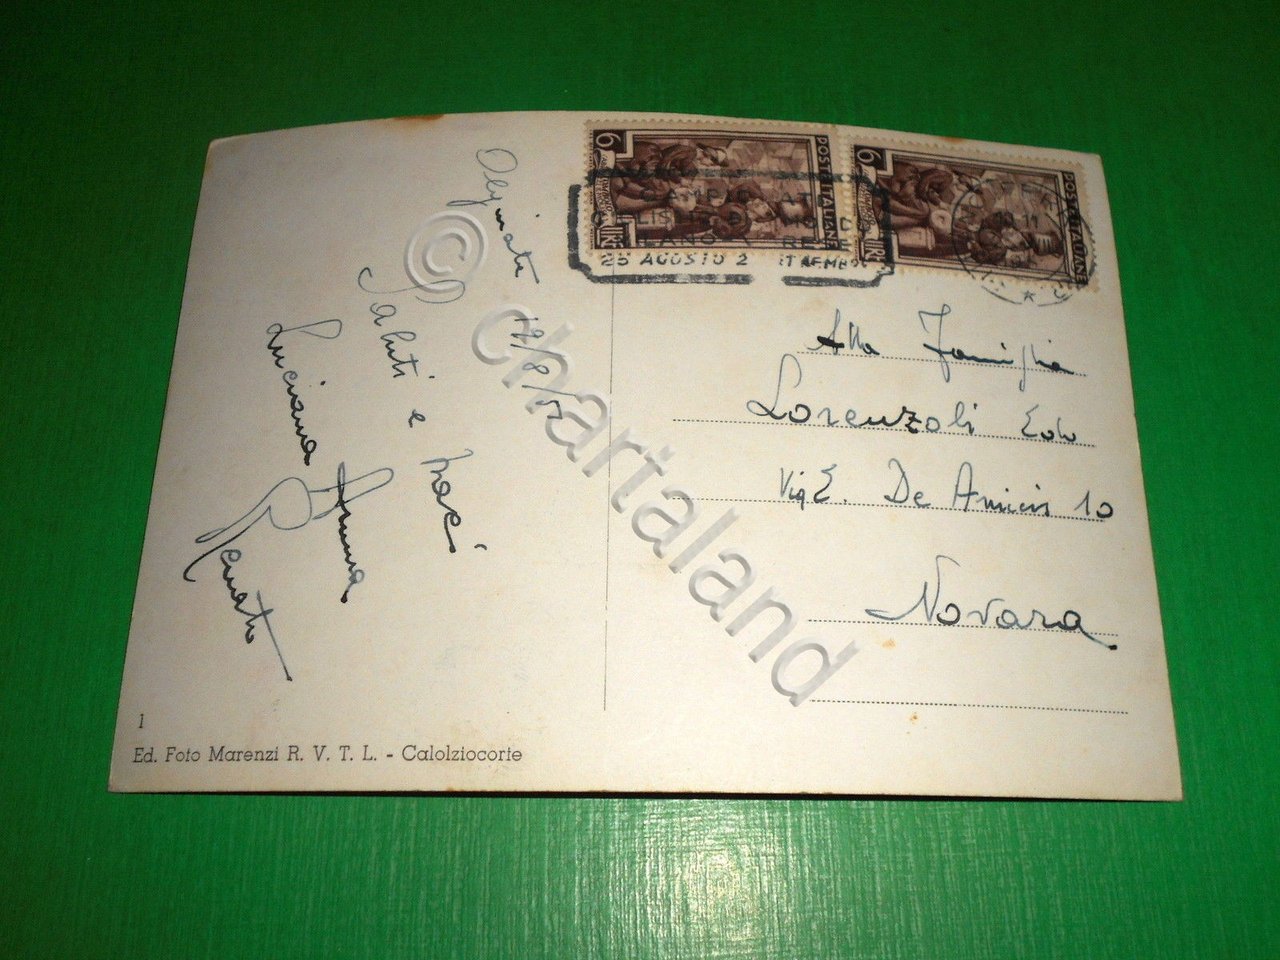 Olginate 19/8/51
Saluti e baci
Luciana Anna
Renato
1
Ed. Foto Marenzi R. V. T. L. - Calolziocorte
6 POSTE ITALIANE
6 POSTE ITALIANE
25 AGOSTO 2 SETTEMBRE
Alla Famiglia
Lorenzoli Edo
Via E. De Amicis 10
Novara
© chartaland